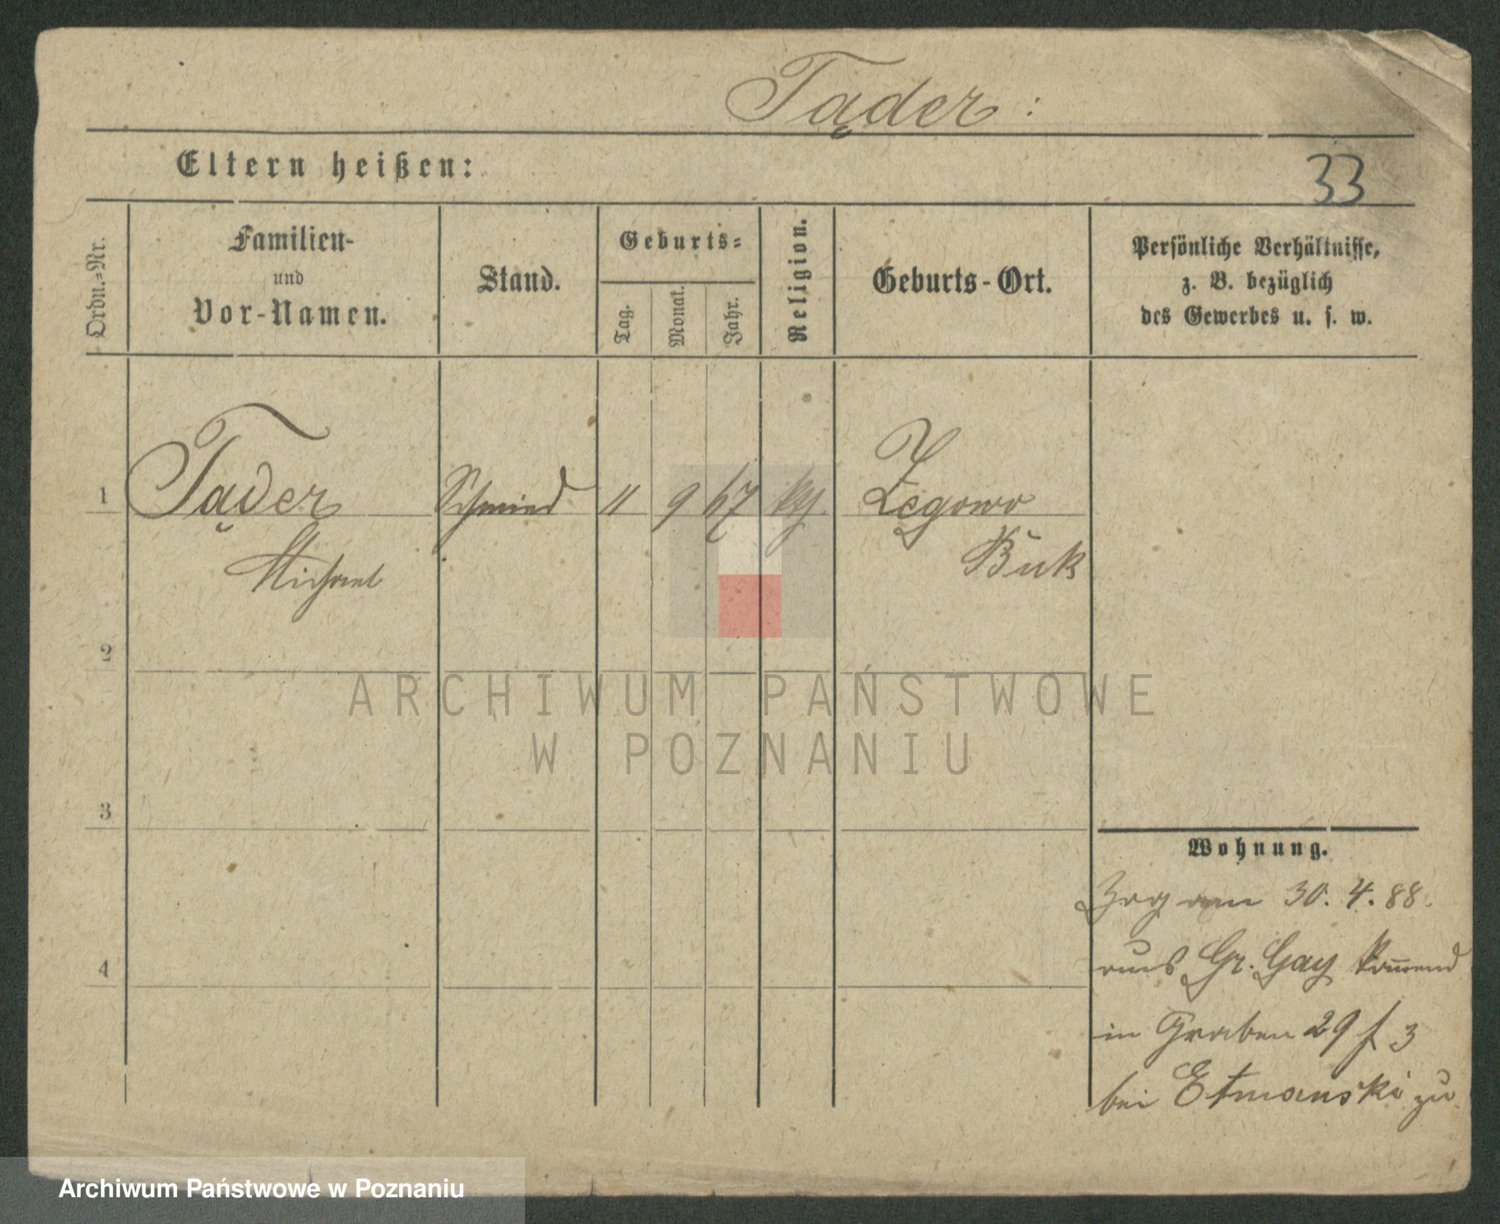 Tąder :
Eltern heißen:
33
Ordn.-Nr.
Familien-
und
Vor-Namen.
Stand.
Geburts-
Tag.
Monat.
Jahr.
Religion.
Geburts-Ort.
Persönliche Verhältnisse,
z. B. bezüglich
des Gewerbes u. s. w.
1 Tąder Schmied 11 9 67 Zęgowo
Michael Buk
2
3
4
Wohnung.
Zog am 30. 4. 88.
aus Gr. Gay kommend
in Graben 29 f 3
bei Etmanski zu
ARCHIWUM PAŃSTWOWE
W POZNANIU
Archiwum Państwowe w Poznaniu